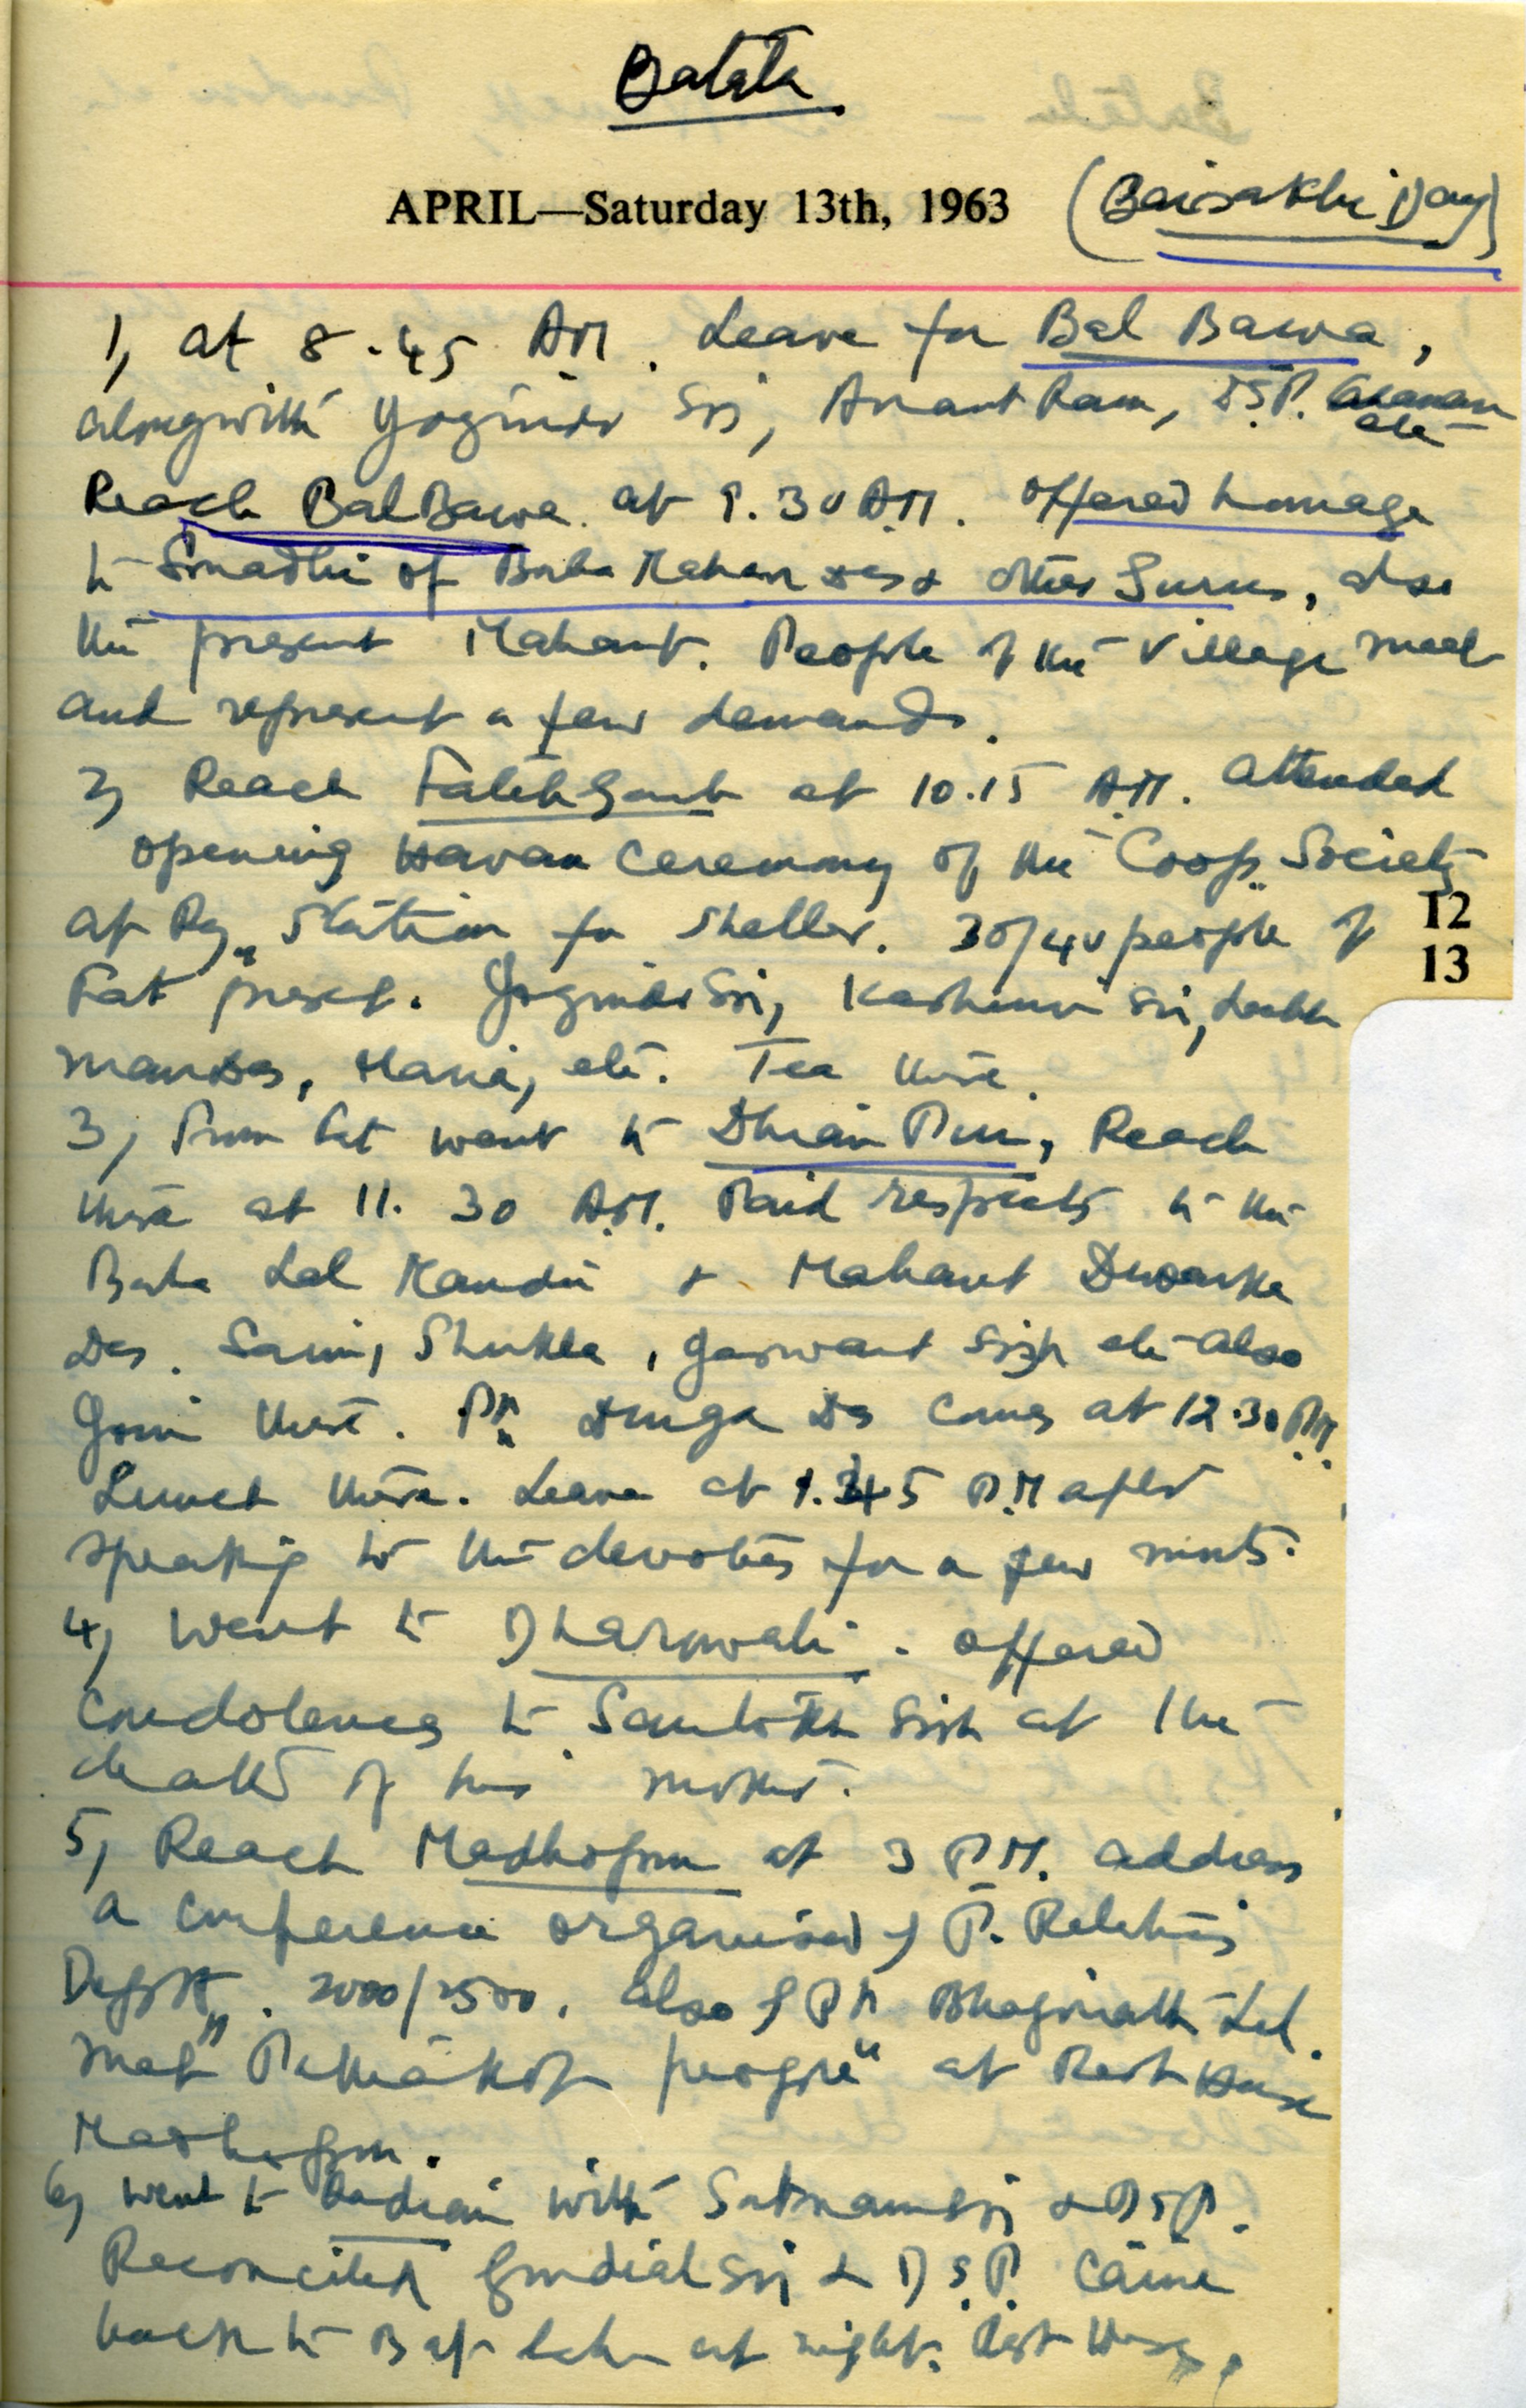 Batala
APRIL—Saturday 13th, 1963 (Baisakhi Day)
1, at 8.45 AM. Leave for Bal Bawa,
alongwith Yoginder Sij, Anant Ram, D.S.P. etc
Reach Bal Bawa at 9.30 A.M. offered homage
to Smadhi of Baba Mahan Das & other Gurus, also
the present Mahant. People of the Village meet
and represent a few demands.
2, Reach Fatehgarh at 10.15 A.M. attended
opening Havan ceremony of the Coop. Society
at Ry. Station for Sheller. 30/40 people of
12
13
Fat present. Joginder Sij, Kashmir Sij,
etc. Tea there.
3, From Fat went to Dhian Pur, Reach
there at 11.30 A.M. Paid respects to the
Baba Lal Mandir & Mahant Dwarka
Das. Saini, Shukla, Jaswant Sigh etc also
join there. Pt. Durga Das comes at 12.30 P.M.
Lunch there. Leave at 1.45 P.M after
speaking to the devotees for a few mints.
4, Went to Dhariwal. offered
condolences to Santokh Sigh at the
death of his mother.
5, Reach Madhopur at 3 P.M. address
a conference organised by P. Relations
Deptt. 2000/2500. also by Pt Bhagirath Lal.
met "Pathankot people" at Rest House
Madhopur.
6, went to Qadian with Satnam Sij & DSP.
Reconciled Gurdial Sij & D.S.P. Came
back to Batala at night. Rest House.